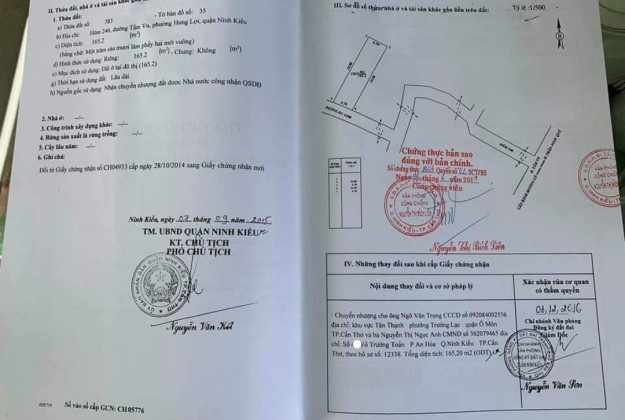 II. Thửa đất, nhà ở và tài sản khác gắn liền
1. Thửa đất:
a) Thửa đất số: 383 - Tờ bản đồ số: 35
b) Địa chỉ: Hẻm 246, đường Tầm Vu, phường Hưng Lợi, quận Ninh Kiều
c) Diện tích: 165.2 [m²]
(bằng chữ: Một trăm sáu mươi lăm phẩy hai mét vuông)
d) Hình thức sử dụng: Riêng: 165.2 [m²], Chung: Không [m²]
e) Mục đích sử dụng: Đất ở tại đô thị (165.2)
g) Thời hạn sử dụng đất: Lâu dài
h) Nguồn gốc sử dụng: Nhận chuyển nhượng đất được Nhà nước công nhận QSDĐ
2. Nhà ở : -/-
3. Công trình xây dựng khác: -/-
4. Rừng sản xuất là rừng trồng: -/-
5. Cây lâu năm: -/-
6. Ghi chú:
Đổi từ Giấy chứng nhận số CH04933 cấp ngày 28/10/2014 sang Giấy chứng nhận mới
Ninh Kiều, ngày 07 tháng 09 năm 2015
TM. UBND QUẬN NINH KIỀU
KT. CHỦ TỊCH
PHÓ CHỦ TỊCH
Nguyễn Văn Kết
Số vào sổ cấp GCN: CH05776
III. Sơ đồ thửa đất, nhà ở và tài sản khác gắn liền trên đất: Tỷ lệ :1/500
Chứng thực bản sao
đúng với bản chính.
Số chứng thực Quyển số SCT/BS
Công chứng viên
VĂN PHÒNG
CÔNG CHỨNG
Nguyễn Thị Bích Liên
IV. Những thay đổi sau khi cấp Giấy chứng nhận
Nội dung thay đổi và cơ sở pháp lý
Xác nhận của cơ quan
có thẩm quyền
- Chuyển nhượng cho ông Ngô Văn Trọng CCCD số 092084002556
địa chỉ: khu vực Tân Thạnh phường Trường Lạc - quận Ô Môn
TP.Cần Thơ và bà Nguyễn Thị Ngọc Anh CMND số 362079465 địa
chỉ: Số Võ Trường Toản P.An Hòa Q.Ninh Kiều TP.Cần
Thơ, theo hồ sơ số: 12338. Tổng diện tích: 165,20 m² (ODT)
08/12/2016
Chi nhánh Văn phòng
Đăng ký đất đai
Giám Đốc
CHI NHÁNH
VĂN PHÒNG
ĐĂNG KÝ ĐẤT ĐAI
Nguyễn Văn Sơn